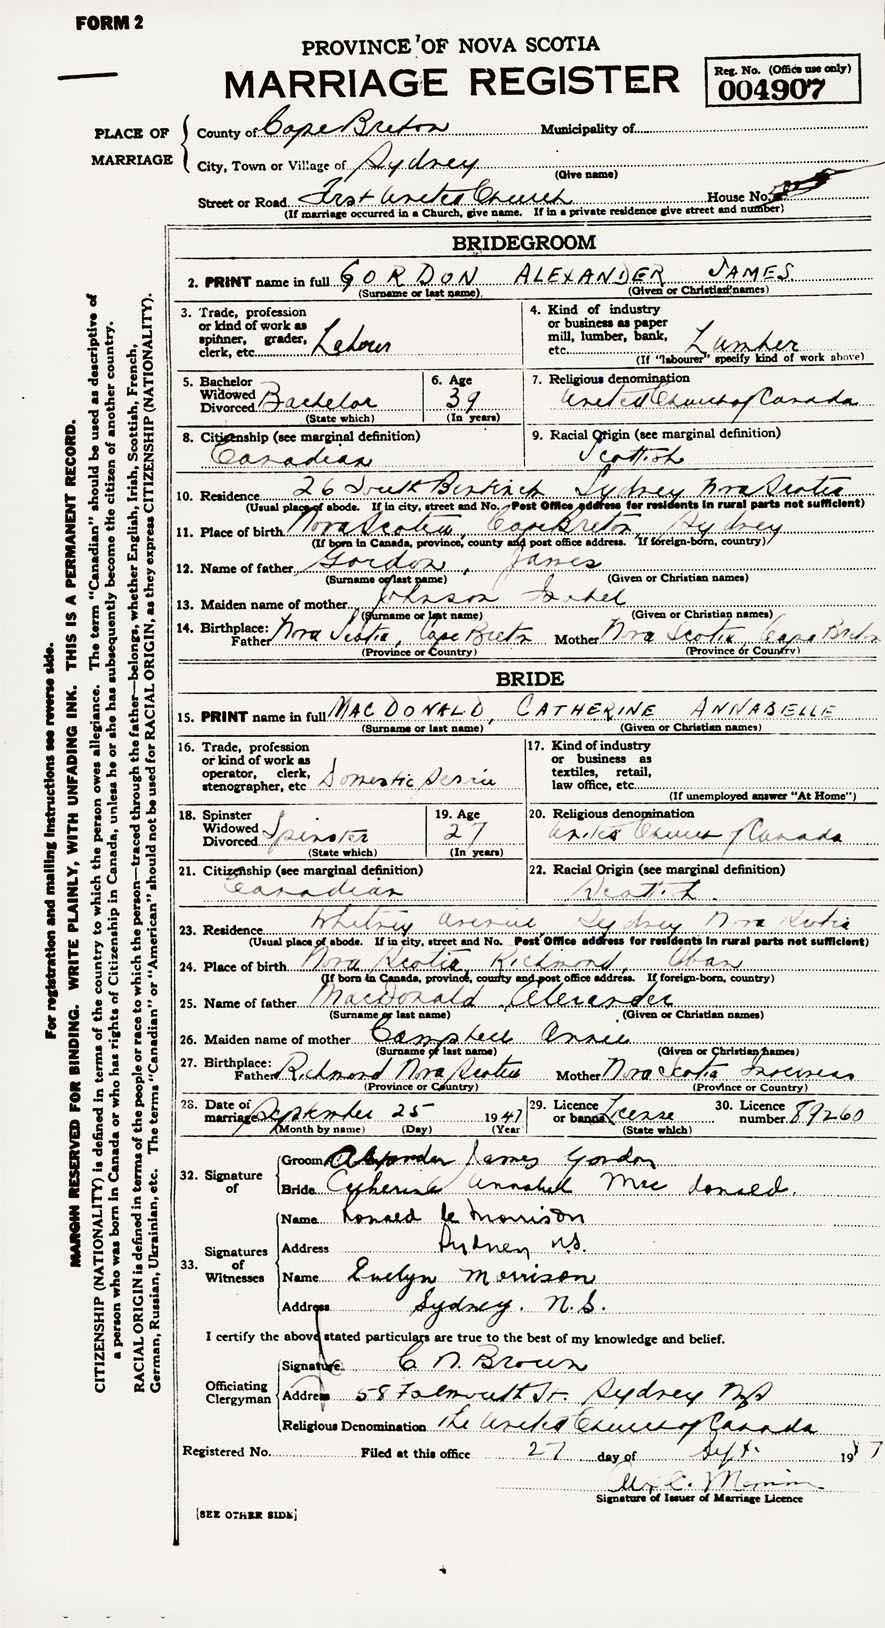 FORM 2
PROVINCE OF NOVA SCOTIA
MARRIAGE REGISTER
Reg. No. (Office use only)
004907
PLACE OF MARRIAGE
County of Cape Breton Municipality of
City, Town or Village of Sydney
(Give name)
Street or Road First United Church House No.
(If marriage occurred in a Church, give name. If in a private residence give street and number)
For registration and mailing instructions see reverse side.
MARGIN RESERVED FOR BINDING. WRITE PLAINLY, WITH UNFADING INK. THIS IS A PERMANENT RECORD.
CITIZENSHIP (NATIONALITY) is defined in terms of the country to which the person owes allegiance. The term "Canadian" should be used as descriptive of
a person who was born in Canada or who has rights of Citizenship in Canada, unless he or she has subsequently become the citizen of another country.
RACIAL ORIGIN is defined in terms of the people or race to which the person—traced through the father—belongs, whether English, Irish, Scottish, French,
German, Russian, Ukrainian, etc. The terms "Canadian" or "American" should not be used for RACIAL ORIGIN, as they express CITIZENSHIP (NATIONALITY).
BRIDEGROOM
2. PRINT name in full GORDON ALEXANDER JAMES
(Surname or last name) (Given or Christian names)
3. Trade, profession
or kind of work as
spinner, grader,
clerk, etc. Labour
4. Kind of industry
or business as paper
mill, lumber, bank,
etc. Lumber
(If "labourer" specify kind of work above)
5. Bachelor
Widowed
Divorced Bachelor
(State which)
6. Age
39
(In years)
7. Religious denomination
United Church of Canada
8. Citizenship (see marginal definition)
Canadian
9. Racial Origin (see marginal definition)
Scottish
10. Residence 26 South Sydney Nova Scotia
(Usual place of abode. If in city, street and No. Post Office address for residents in rural parts not sufficient)
11. Place of birth Nova Scotia, Cape Breton, Sydney
(If born in Canada, province, county and post office address. If foreign-born, country)
12. Name of father Gordon, James
(Surname or last name) (Given or Christian names)
13. Maiden name of mother Johnson Isabel
(Surname or last name) (Given or Christian names)
14. Birthplace:
Father Nova Scotia, Cape Breton Mother Nova Scotia, Cape Breton
(Province or Country) (Province or Country)
BRIDE
15. PRINT name in full MACDONALD, CATHERINE ANNABELLE
(Surname or last name) (Given or Christian names)
16. Trade, profession
or kind of work as
operator, clerk,
stenographer, etc Domestic Service
17. Kind of industry
or business as
textiles, retail,
law office, etc.
(If unemployed answer "At Home")
18. Spinster
Widowed
Divorced Spinster
(State which)
19. Age
27
(In years)
20. Religious denomination
United Church of Canada
21. Citizenship (see marginal definition)
Canadian
22. Racial Origin (see marginal definition)
Scottish.
23. Residence Whitney Avenue, Sydney Nova Scotia
(Usual place of abode. If in city, street and No. Post Office address for residents in rural parts not sufficient)
24. Place of birth Nova Scotia, Richmond, Oban
(If born in Canada, province, county and post office address. If foreign-born, country)
25. Name of father MacDonald Alexander
(Surname or last name) (Given or Christian names)
26. Maiden name of mother Campbell Annie
(Surname or last name) (Given or Christian names)
27. Birthplace:
Father Richmond Nova Scotia Mother Nova Scotia Inverness
(Province or Country) (Province or Country)
28. Date of
marriage September 25 1947
(Month by name) (Day) (Year)
29. Licence
or banns License
(State which)
30. Licence
number 89260
32. Signature of
Groom Alexander James Gordon
Bride Catherine Annabel MacDonald.
33. Signatures of Witnesses
Name Ronald W Morrison
Address Sydney N.S.
Name Evelyn Morrison
Address Sydney. N.S.
I certify the above stated particulars are true to the best of my knowledge and belief.
Officiating Clergyman
Signature C. N. Brown
Address 58 Falmouth St. Sydney N.S
Religious Denomination The United Church of Canada
Registered No. Filed at this office 27 day of Sept. 1947
Signature of Issuer of Marriage Licence
[SEE OTHER SIDE]